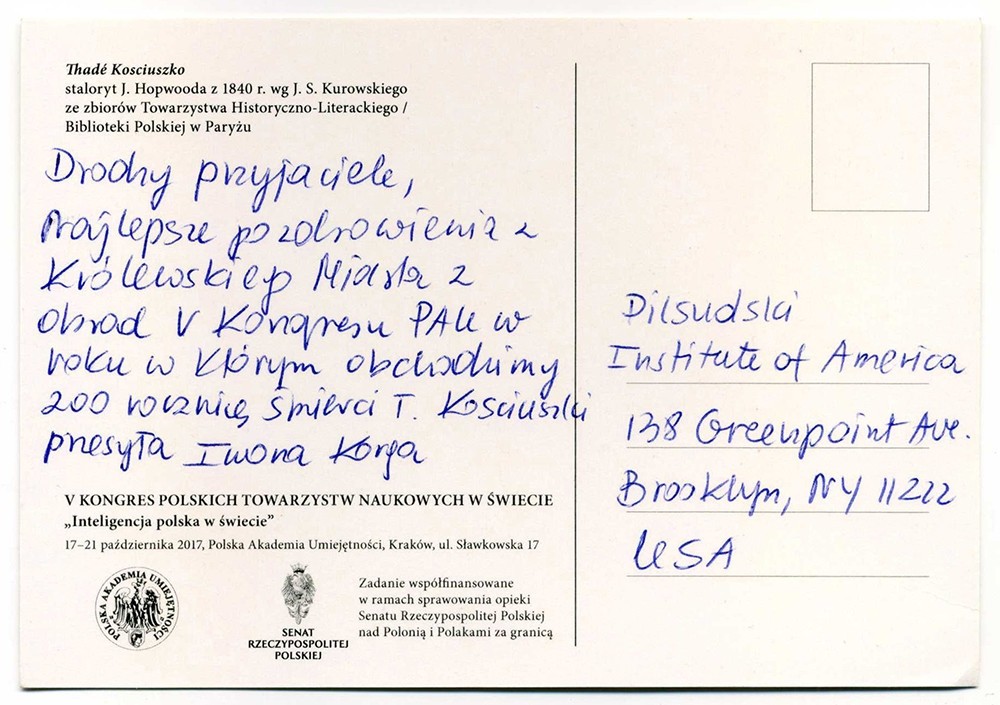 Thadé Kosciuszko
staloryt J. Hopwooda z 1840 r. wg J. S. Kurowskiego
ze zbiorów Towarzystwa Historyczno-Literackiego /
Biblioteki Polskiej w Paryżu
Drodzy przyjaciele,
Najlepsze pozdrowienia z
Królewskiego Miasta z
obrad V Kongresu PAU w
roku w którym obchodzimy
200 rocznicę śmierci T. Kościuszki
przesyła Iwona Korga
V KONGRES POLSKICH TOWARZYSTW NAUKOWYCH W ŚWIECIE
„Inteligencja polska w świecie”
17–21 października 2017, Polska Akademia Umiejętności, Kraków, ul. Sławkowska 17
POLSKA AKADEMIA UMIEJĘTNOŚCI
SENAT
RZECZYPOSPOLITEJ
POLSKIEJ
Zadanie współfinansowane
w ramach sprawowania opieki
Senatu Rzeczypospolitej Polskiej
nad Polonią i Polakami za granicą
Pilsudski
Institute of America
138 Greenpoint Ave.
Brooklyn, NY 11222
USA